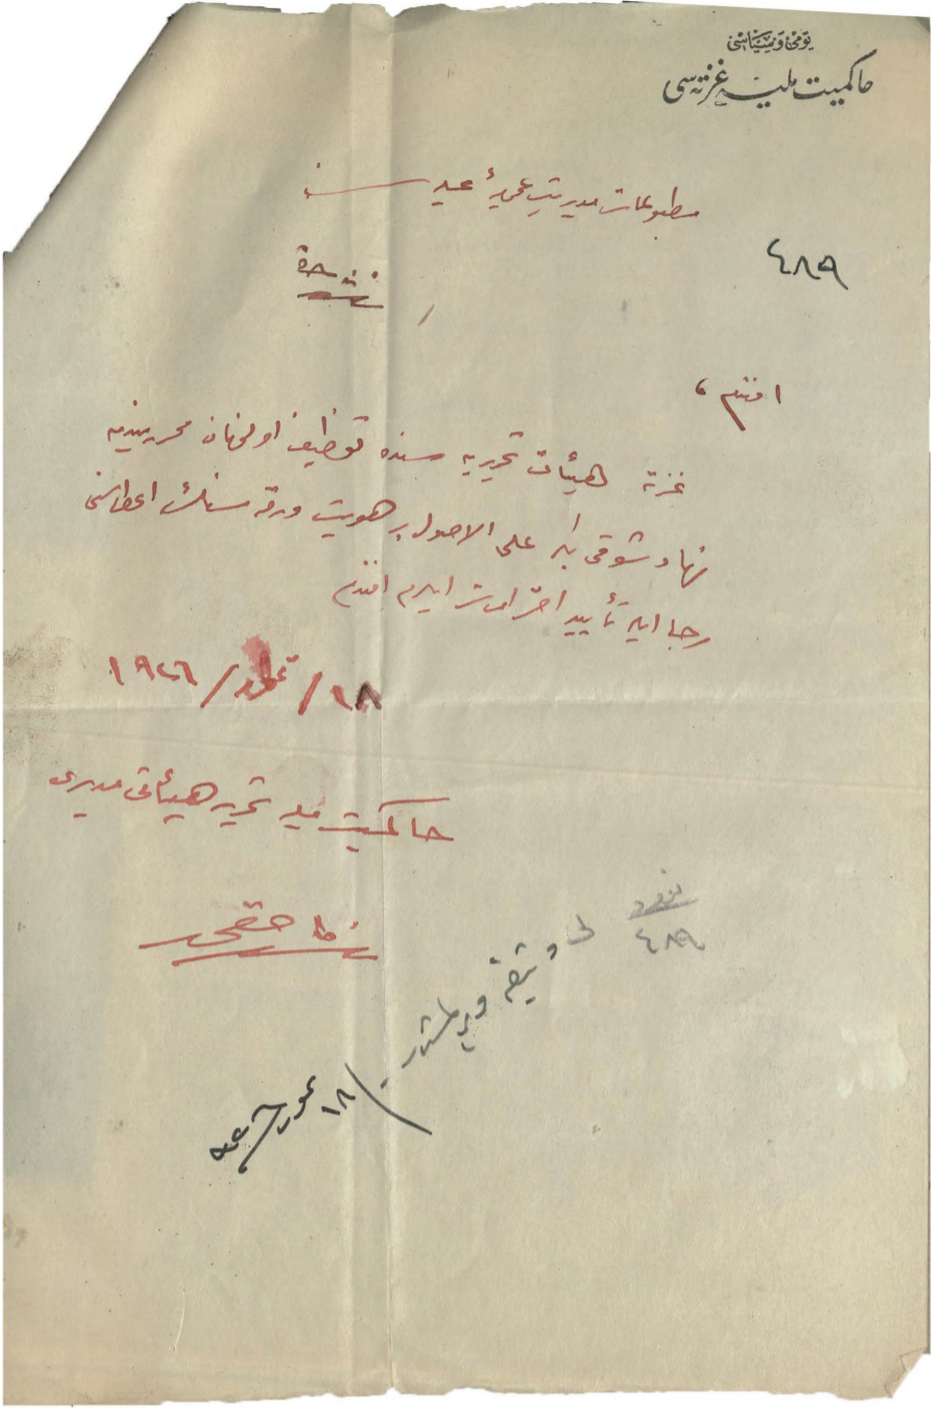 يومى و سياسى
حاكميت مليه غزته سى
مطبوعات مديريت عموميه سنه
٤٨٩
افندم ،
غزته هيئات تحريريه سنده توظيف اولنان محررينده
نهاد شوقى بكه على الاصول بر هويت ورقه سنك اعطاسنى
رجا ايله تأييد احترامات ايلرم افندم
١٨/ تموز/ ١٩٢٦
حاكميت مليه تحرير هيئاتى مديرى
حقى
٤٨٩
وثيقه ويرلمشدر
١٨